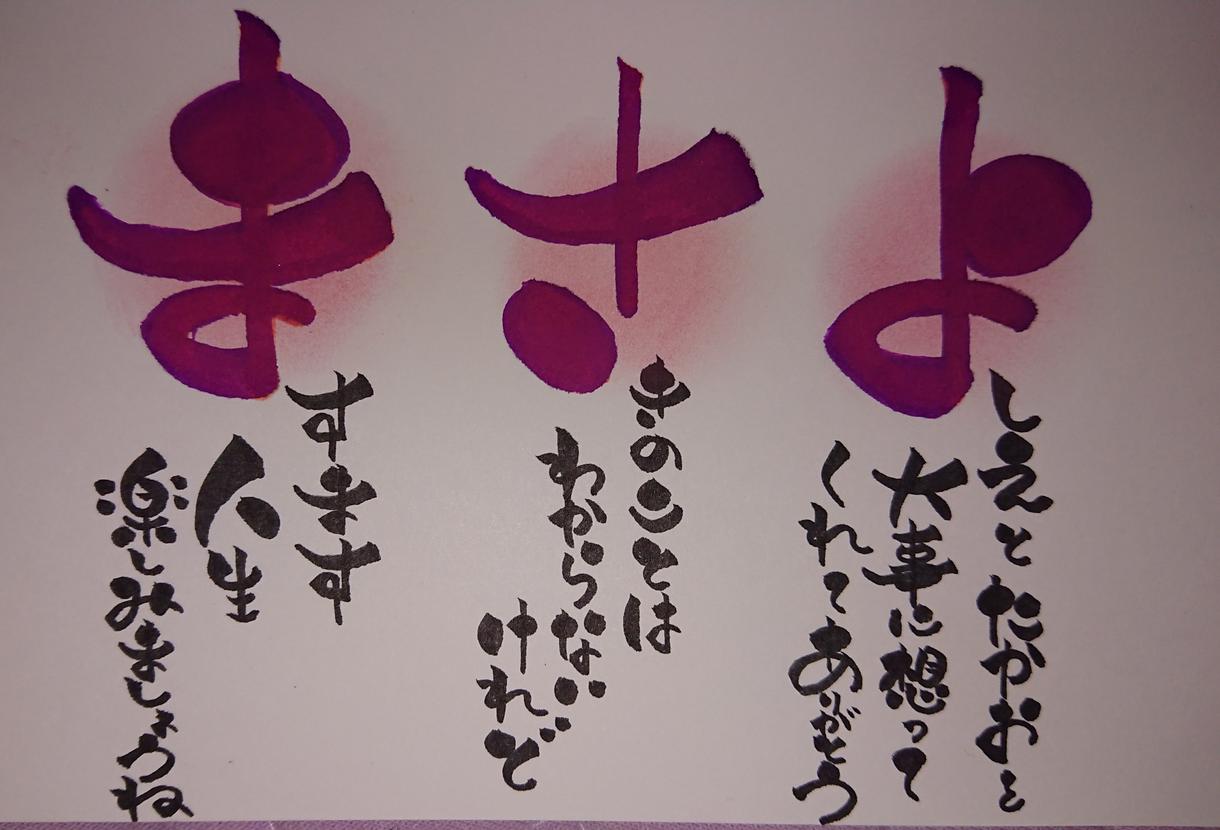 よ
しえと たかおを
大事に想って
くれてありがとう
さ
きのことは
わからない
けれど
ま
すます
人生
楽しみましょうね